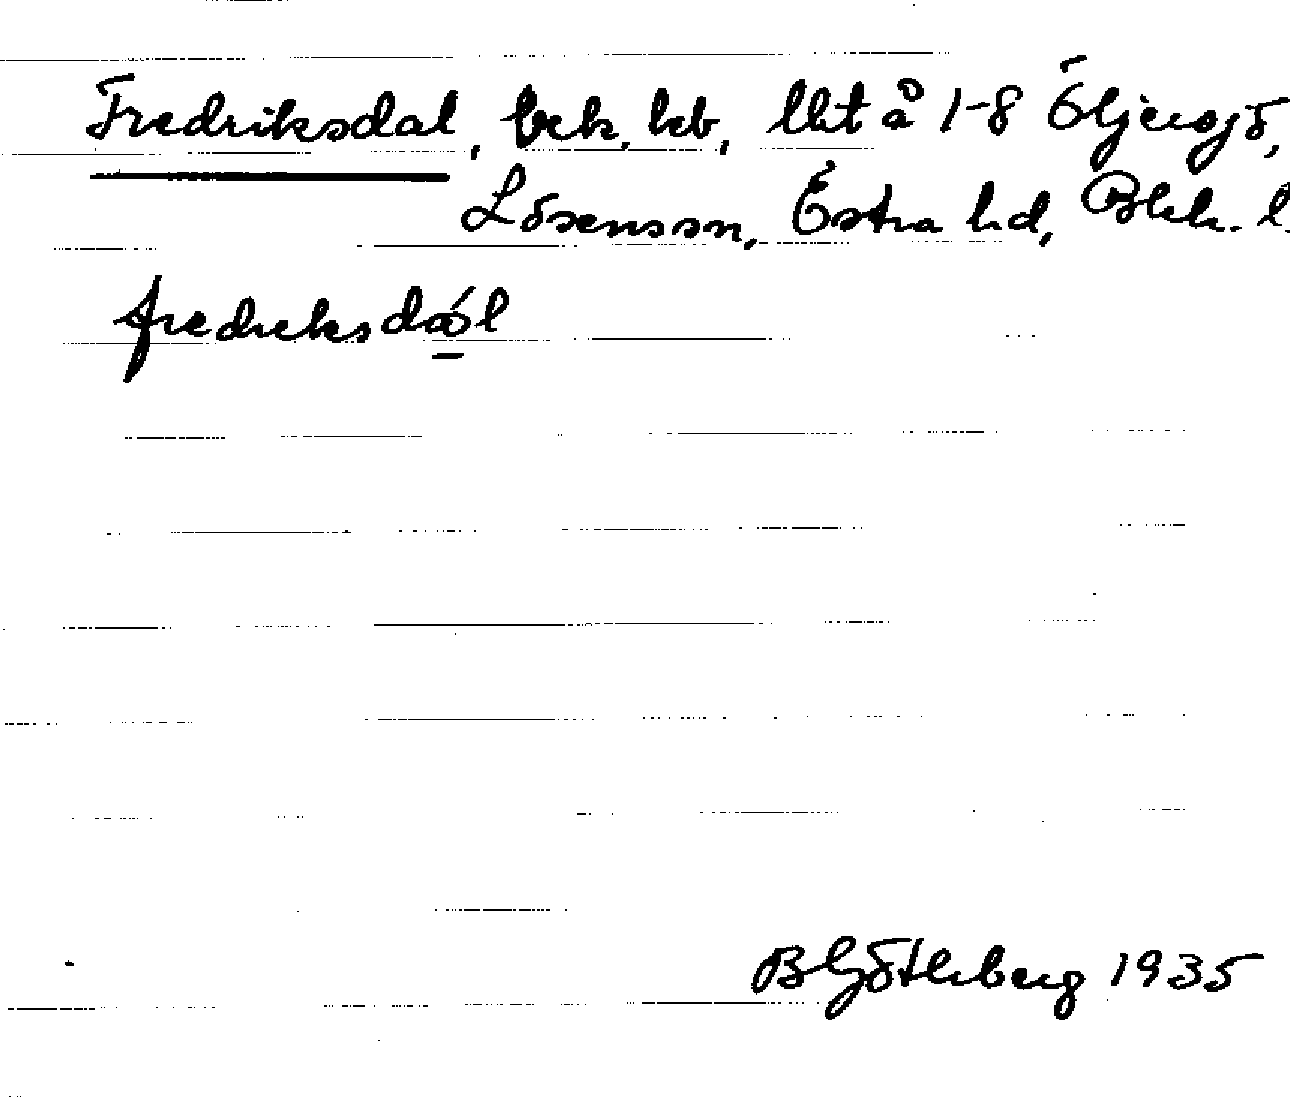 Fredriksdal, bek. lb, lht å 1-8 Öljersjö,
Lösens sn, Östra hd, Blek. l.
fredriksdál
B Götlberg 1935